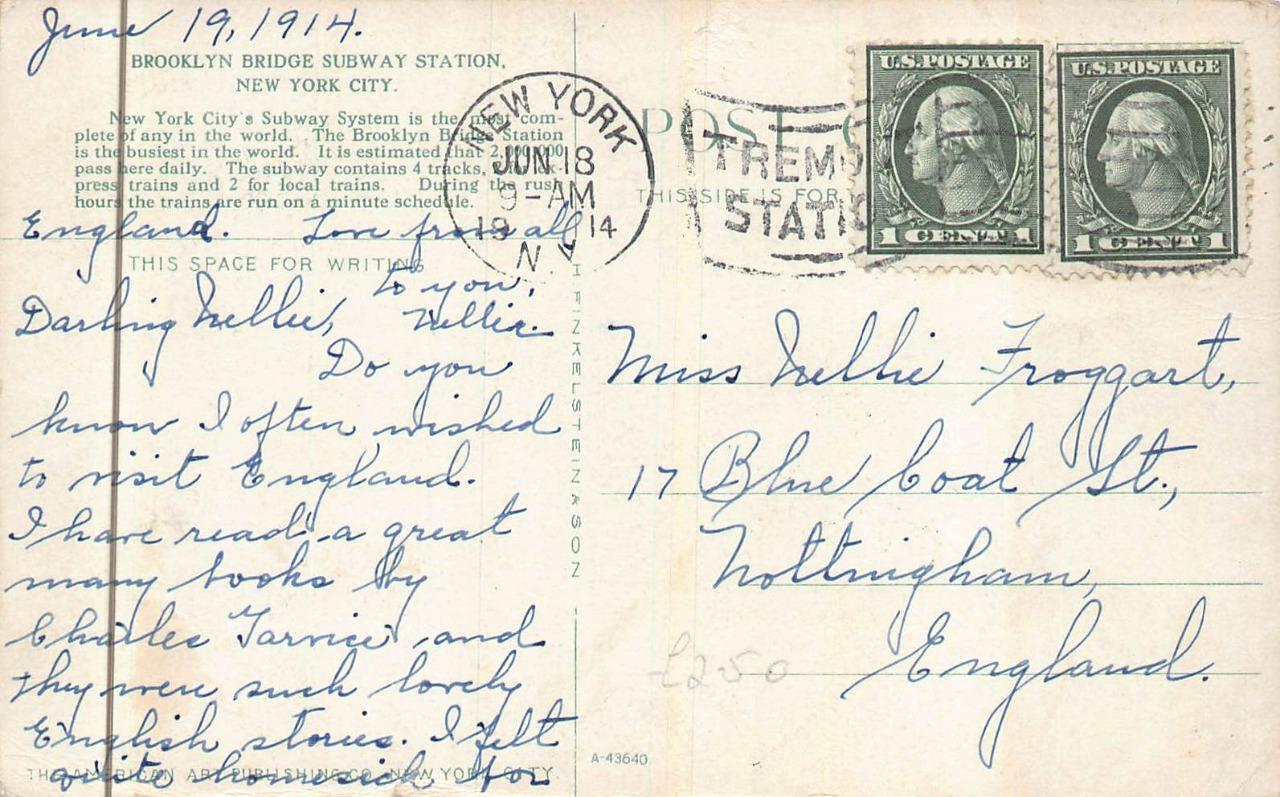 June 19, 1914.
BROOKLYN BRIDGE SUBWAY STATION,
NEW YORK CITY.
New York City's Subway System is the most com-
plete of any in the world. The Brooklyn Bridge Station
is the busiest in the world. It is estimated that 2,000,000
pass here daily. The subway contains 4 tracks, 2 for ex-
press trains and 2 for local trains. During the rush
hours the trains are run on a minute schedule.
England. Love from all
to you,
Nellie.
THIS SPACE FOR WRITING
Darling Nellie,
Do you
know I often wished
to visit England.
I have read a great
many books by
Charles Garvice and
they were such lovely
English stories. I felt
quite homesick for
THE AMERICAN ART PUBLISHING CO., NEW YORK CITY.
H FINKELSTEIN & SON
A-43640
POST
THIS SIDE IS FOR
NEW YORK
JUN 18
9-AM
19 14
N Y
STATION
U.S. POSTAGE
1 CENT 1
U.S. POSTAGE
1 CENT 1
Miss Nellie Froggart,
17 Blue Coat St.,
Nottingham,
England.
£250